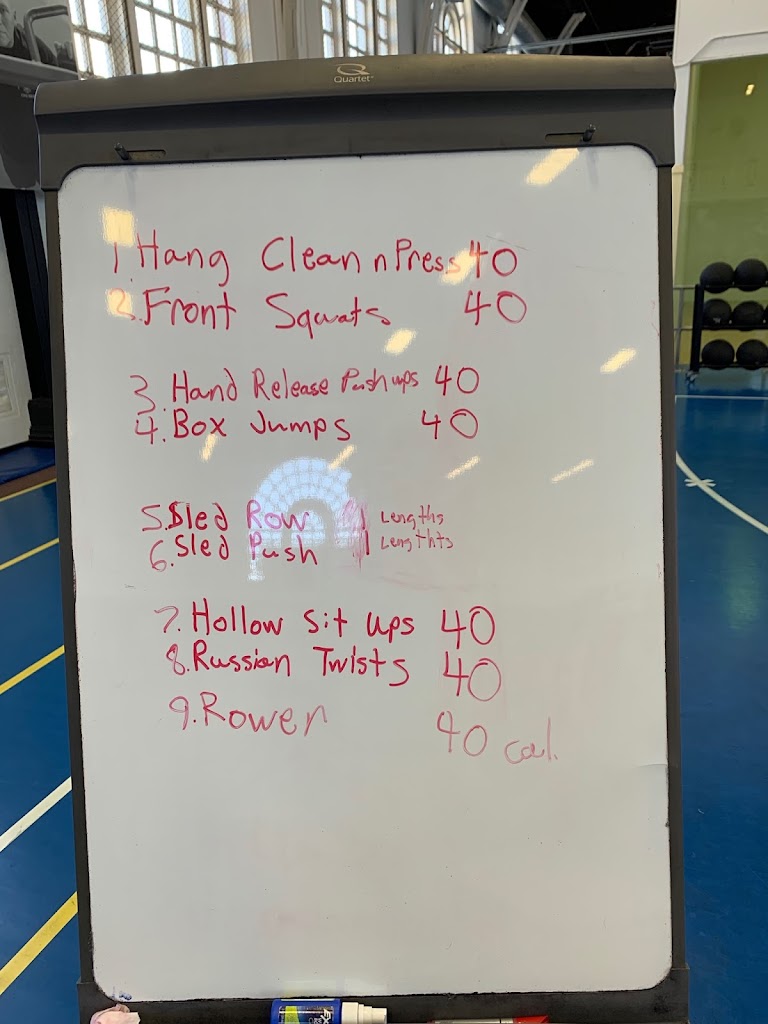 Quartet
1. Hang Clean n Press 40
2. Front Squats 40
3. Hand Release Push ups 40
4. Box Jumps 40
5. Sled Row 1 Lengths
6. Sled Push 1 Lengthts
7. Hollow Sit ups 40
8. Russian Twists 40
9. Rower 40 cal.